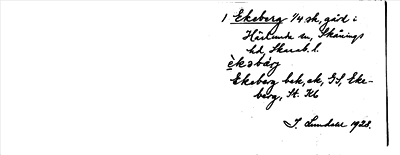 1 Ekeberg 1/4 sk, gård i
Härlunda sn, Skånings
hd, Skarab. l.
èkəbárg
Ekeberg bek, ek, GS, Eke-
berg, St. Kb
I. Lundahl 1928.